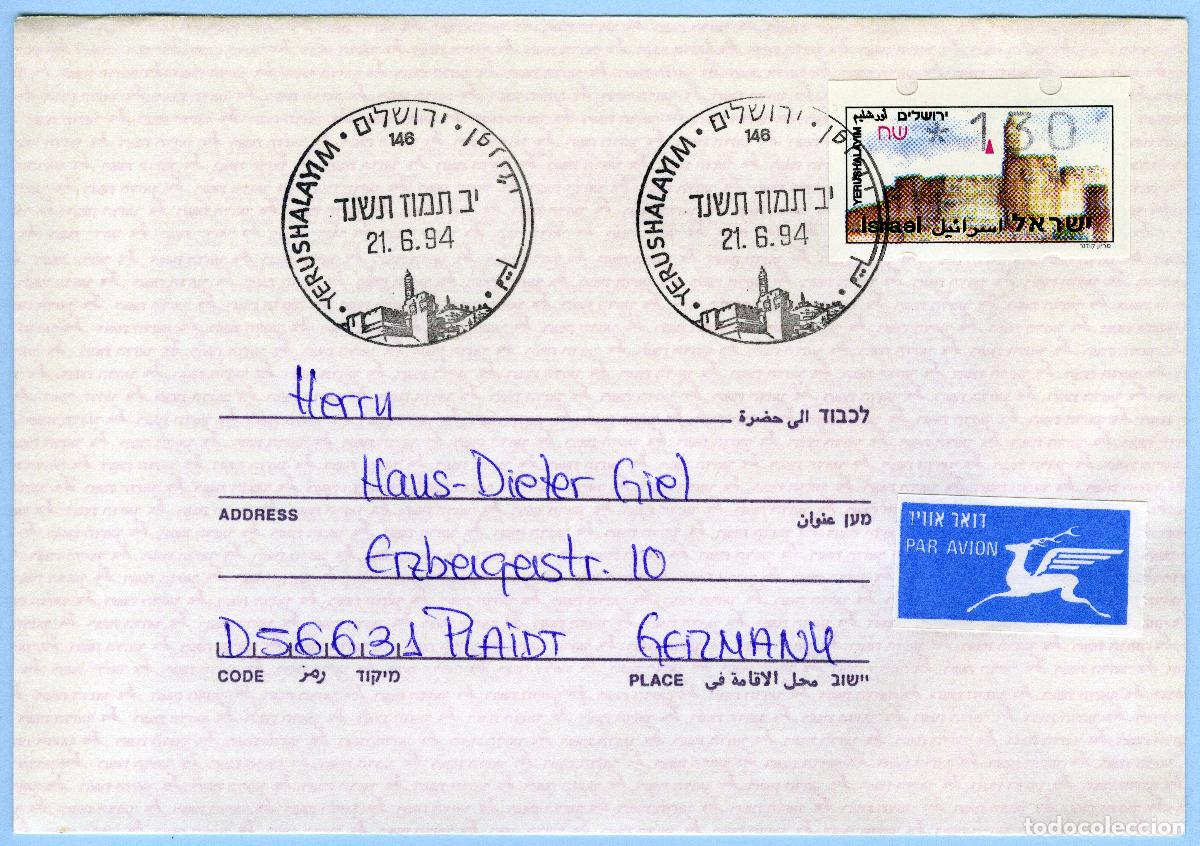 YERUSHALAYIM • ירושלים •
146
יב תמוז תשנד
21.6.94
YERUSHALAYIM • ירושלים •
146
יב תמוז תשנד
21.6.94
ירושלים
YERUSHALAYIM
שח *130
Israel اسرائيل ישראל
Herrn
לכבוד الى حضرة
Hans-Dieter Giel
ADDRESS מען عنوان
Erzbergerstr. 10
D56631 PLAIDT GERMANY
CODE رمز מיקוד
PLACE יישוב محل الاقامة في
דואר אוויר
PAR AVION
todocoleccion